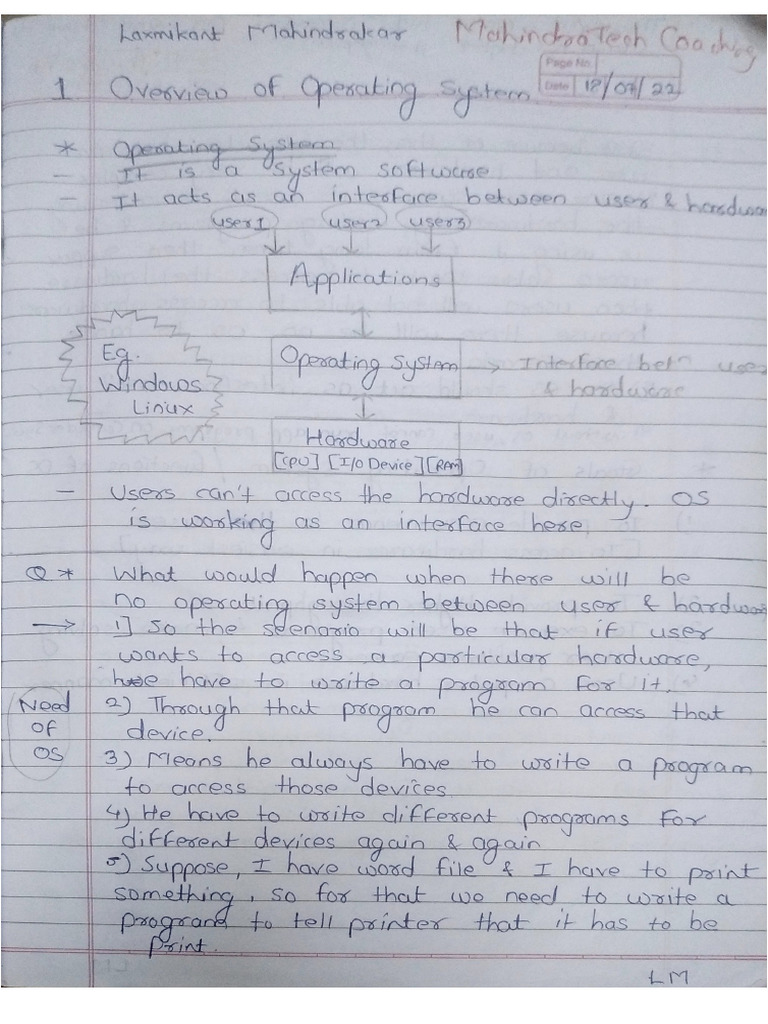 Laxmikant Mahindrakar MahindraTech Coaching
Page No.
Date 12/07/22
1 Overview of Operating System
* Operating System
- It is a system software
- It acts as an interface between user & hardware
user1 user2 user3
Applications
Eg.
Windows
Linux
Operating System → Interface betn user
& hardware
Hardware
[CPU] [I/O Device] [RAM]
- Users can't access the hardware directly. OS
is working as an interface here
Q * What would happen when there will be
no operating system between user & hardware
→ 1] So the scenario will be that if user
wants to access a particular hardware,
he have to write a program for it.
Need
of
OS
2) Through that program he can access that
device.
3) Means he always have to write a program
to access those devices
4) He have to write different programs for
different devices again & again
5) Suppose, I have word file & I have to print
something, so for that we need to write a
program to tell printer that it has to be
print.
LM